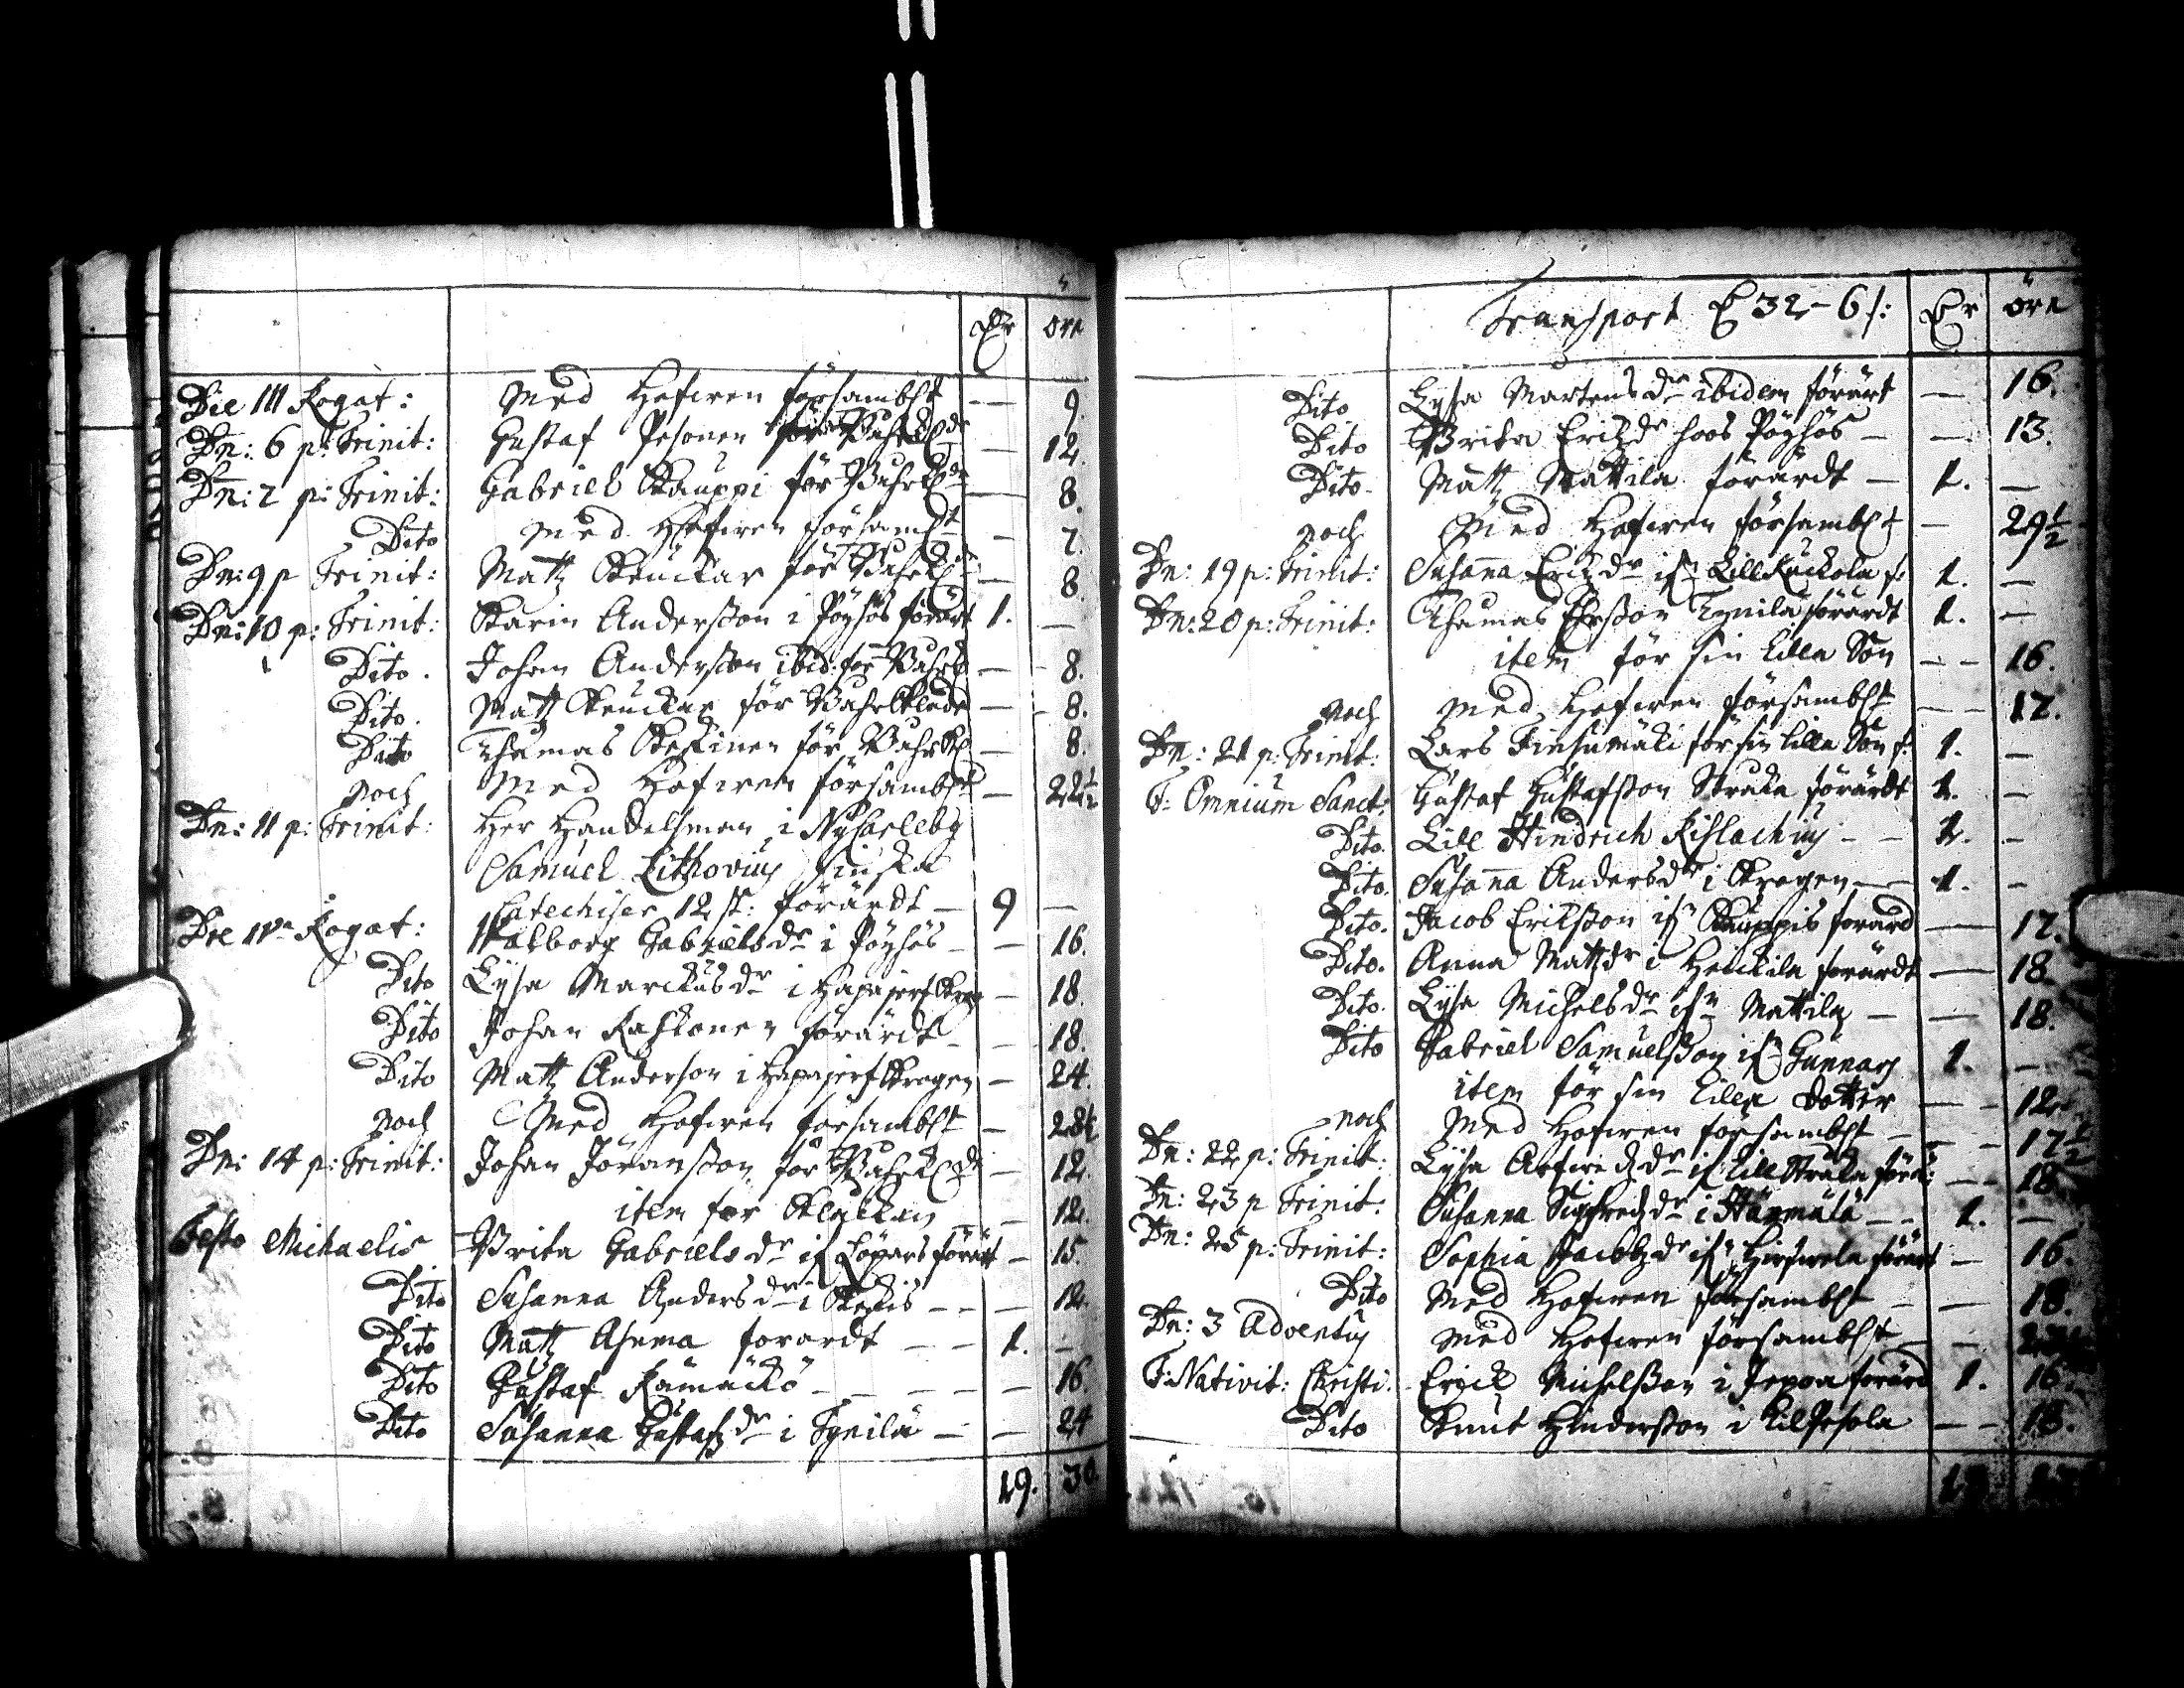 Dr öre
Die III Rogat: Med Hofwen försambl:t — 9.
Dn: 6 p: Trinit: Gustaf Pesonen för Bahrkl:de — 12.
Dn: 7 p: Trinit: Gabriel Kauppi för Bahrkl:de — 8.
Dito Med Hofwen försambl:t — 7.
Dn: 9 p Trinit: Matz Keuckar för Bahrkl:de — 8.
Dn: 10 p: Trinit: Karin Andersson i Pöyhös förärt 1. —
Dito. Johan Andersson ibid: för Bahrkl — 8.
Dito. Matz Keuckar för Bahrkläde — 8.
Dito Thomas Keskinen för Bahrkl — 8.
Noch Med Hofwen försambl:t — 22½
Dn: 11 p: Trinit: Her Handelsman i Nÿcarleby
Samuel Lithovius finska
Catechiser 12 st: förärdt — 9 —
Die IV:a Rogat: Walborg Gabriels dr i Pöyhös — 16.
Dito Lysa Marckus dr i — 18.
Dito Johan förärdt — 18.
Dito Matz Anderson i — 24.
Noch Med Hofwen försambl:t — 28½
Dn: 14 p: Trinit: Johan Jöransson för Bahrkl:de — 12.
item för Klockan — 12.
Festo Michaelis Brita Gabriels dr if Löpars förärt — 15.
Dito Susanna Anders dr i — 12.
Dito Matz Asuma förärdt — 1. —
Dito Gustaf Rämäckö — 16.
Dito Susanna Gustafz dr i Tynilä — 24
19. 30
Transport 32 – 6 /: Dr öre
Dito Lysa Martens dr ibidem förärt — 16.
Dito Brita Erichz dr hoos Pöyhös — 13.
Dito. Matz Mattila förärdt — 1. —
Noch Med Hofwen försambl:t — 29½
Dn: 19 p: Trinit: Susanna Erichz dr if:n Lill Kuckola f: 1. —
Dn: 20 p: Trinit: Thomas Tynilä förärdt 1. —
item för sin lilla Son — 16.
Noch Med Hofwen försambl:t — 17.
Dn: 21 p: Trinit: Lars Finnumäki för sin lilla Son f: 1. —
F: Omnium Sanct: Gustaf Gustafsson Straka förärdt 1. —
Dito. Lill Hindrich Kislachus — 2. —
Dito. Susanna Anders dr i Kragen — 1. —
Dito. Jacob Eriksson if:n Kauppis förärd — 17.
Dito. Anna Matz dr i Heickilä förärdt — 18.
Dito. Lysa Michels dr if:n Mattila — 18.
Dito Gabriel Samuelsson if:n Gunnars 1. —
item för sin lilla dotter — 12
Noch Med Hofwen försambl:t — 17½
Dn: 22 p: Trinit: Lysa dr if: Lill Straka förä: — 18.
Dn: 23 p Trinit: Susanna Sigfredz dr i Härmälä — 1. —
Dn: 25 p: Trinit: Sophia Jacobz dr if:n Hirswela förärt — 16.
Dito Med Hofwen försambl:t — 18.
Dn: 3 Adventus Med Hofwen försambl:t —
F: Nativit: Christi. Erick Michelsson i Jepoa förärd 1. 16.
Dito Knut Hindersson i Lill Pesola — 18.